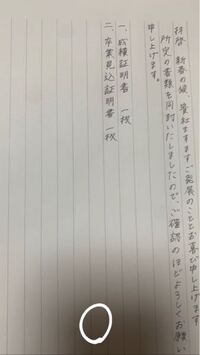 拝啓 新春の候、貴社ますますご発展のこととお喜び申し上げます。
所定の書類を同封いたしましたので、ご確認のほどよろしくお願い
申し上げます。
一、成績証明書 一枚
二、卒業見込証明書 一枚